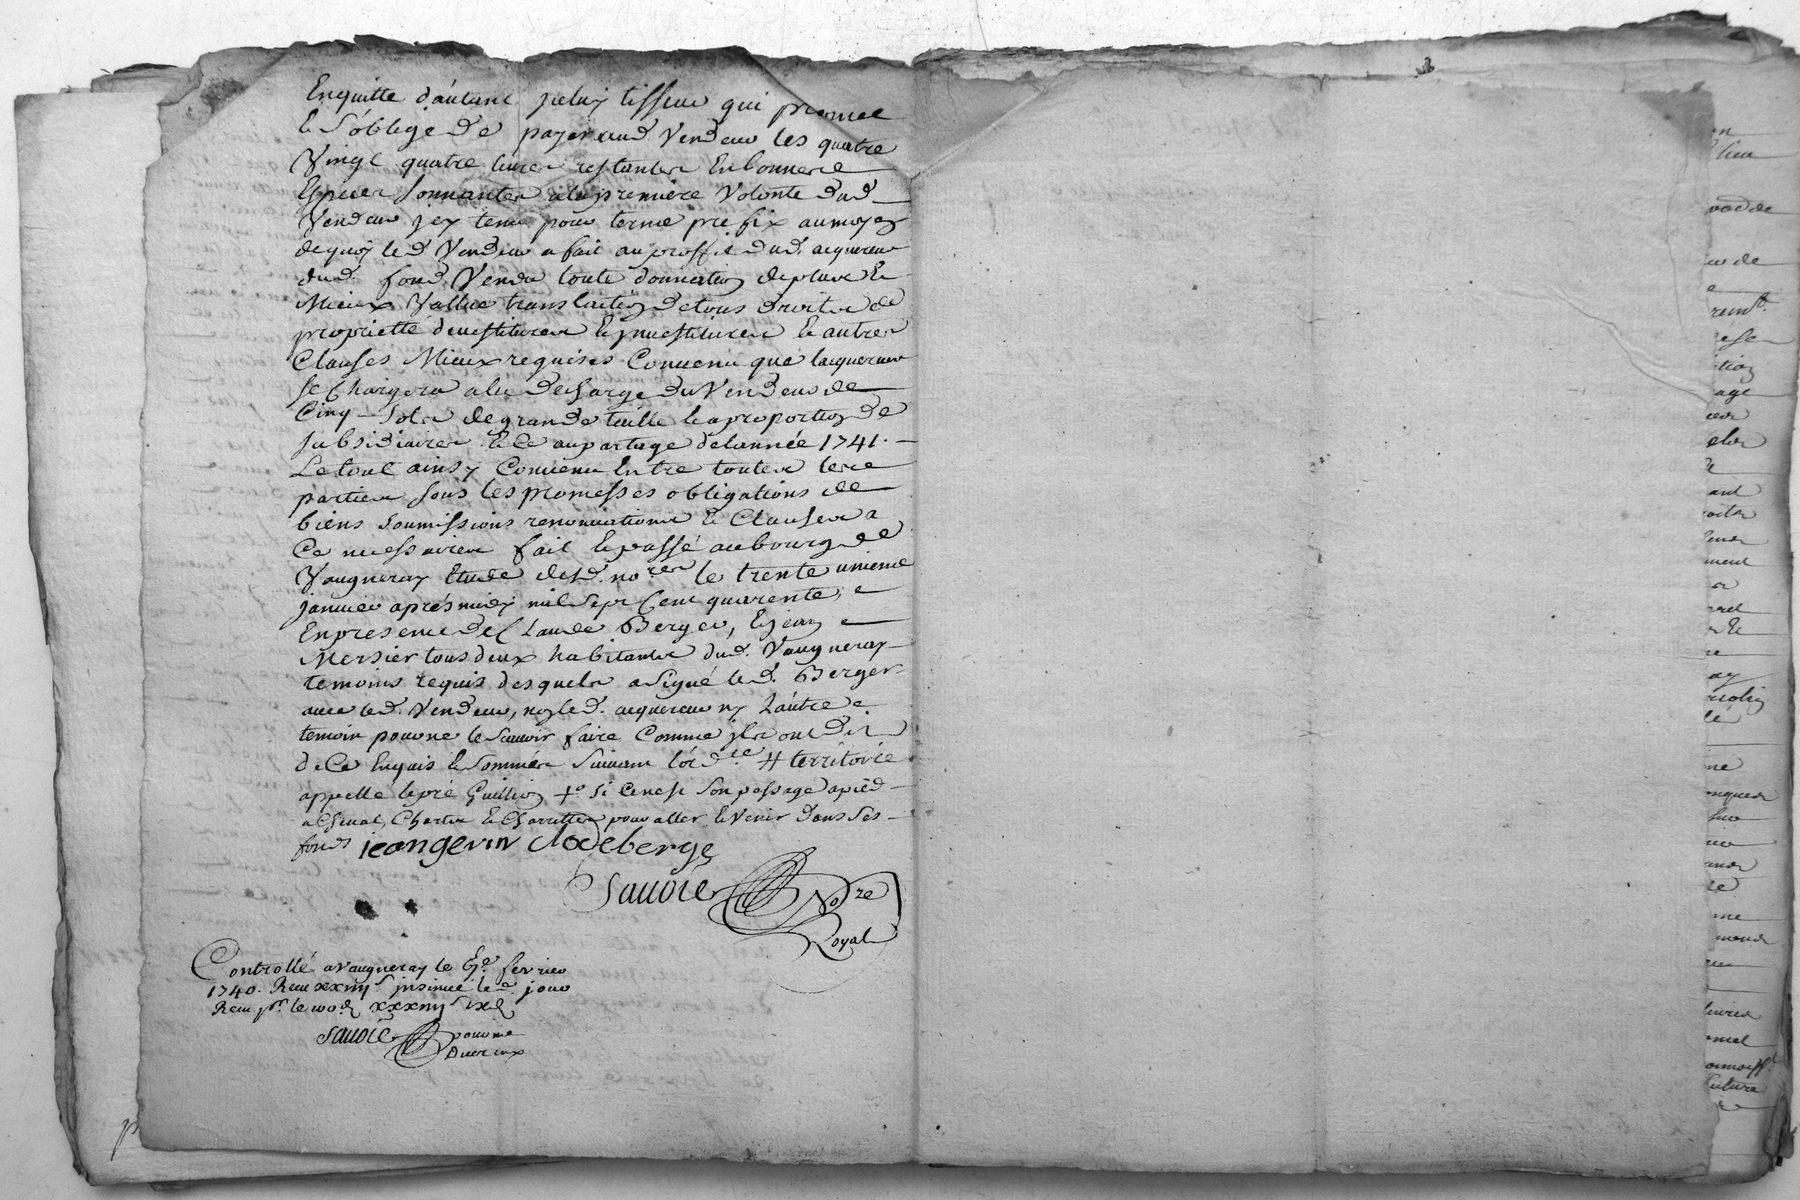 Enquitte d'autant jceluy tisseur qui promet
& s'oblege de payer aud. Vendeur les quatre
Vingt quatre livres restantes En bonnes &
Especes sonnantes a la premiere Volonté dud.
Vendeur jcy tenu pour terme prefix au moyen
de quoy led. Vendeur a fait au proffit dud. acquereur
dud. fond Vendu toute donnation de plus &
Mieux Vallue translation de tous droits de
proprietté devestitures & jnvestitures & autres
Clauses Mieux requises Convenu que lacquereur
se Chargera a la decharge du Vendeur de
Cinq sols de grande taille & a proportion de
subsidiaires & Ce au partage de lannée 1741.
Le tout ainsy Convenu Entre toutes les
parties sous les promesses obligations de
biens soumissions renonciations & Clauses a
Ce necessaires fait & passé au bourg de
Vaugneray Etude dud. no.re le trente unieme
janvier aprés midy mil sept Cent quarente,
En presence de Claude Berger, & jean
Mersier tous deux habitants dud. Vaugneray
temoins requis desquels a signé led. Berger
avec led. Vendeur, no led. acquereur ny L'autre
temoin pour ne le scavoir faire Comme jls ont dit
de Ce Enquis & sommés suivant l'ord.ce # territoire
appellé le pré Guillion +o si Ce nest son passage a pied
a Cheval, Chars & Charrettes pour aller & Venir dans ses
fonds jeangerin clodeberge
Savoie No.re
Royal
Controllé a Vaugneray le 6.e fevrier
1740. Receu xxiiij s jnsinué le d. jour
Receu pr. le 100.e xxxiiij s ix d
Savoie pour me
Ducreux